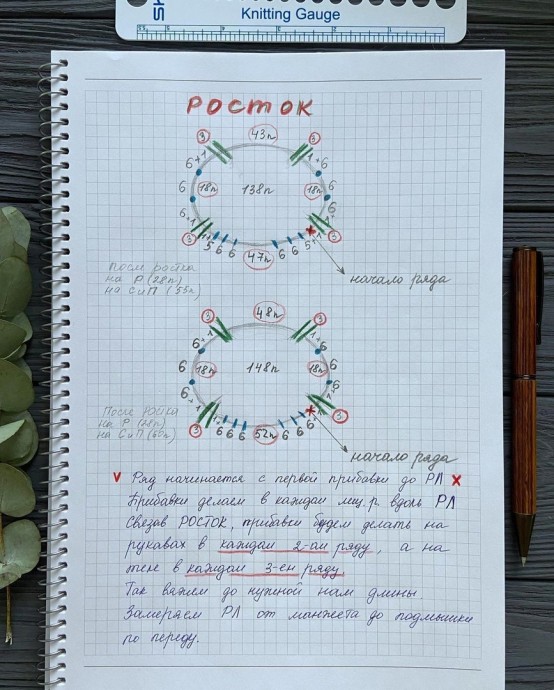 SH
Knitting Gauge
РОСТОК
3 43п 3
6+1 1+6
6 18п 138п 18п 6
6+1 6
3 1+5 6 6 47п 6 6 5+1 3
начало ряда
После ростка
на Р (28п)
на СиП (55п)
3 48п 3
6+1 1+6
6 18п 148п 18п 6
6+1 6
3 6 6 6 52п 6 6 6 3
начало ряда
После
на Р
на СиП (60п)
V Ряд начинается с первой прибавки до РЛ X
Прибавки делаем в каждом лиц.р вдоль РЛ
Связав РОСТОК, прибавки будем делать на
рукавах в каждом 2-ом ряду, а на
теле в каждом 3-ем ряду.
Так вяжем до нужной нам длины.
Замеряем РЛ от манжета до подмышки
по переду.